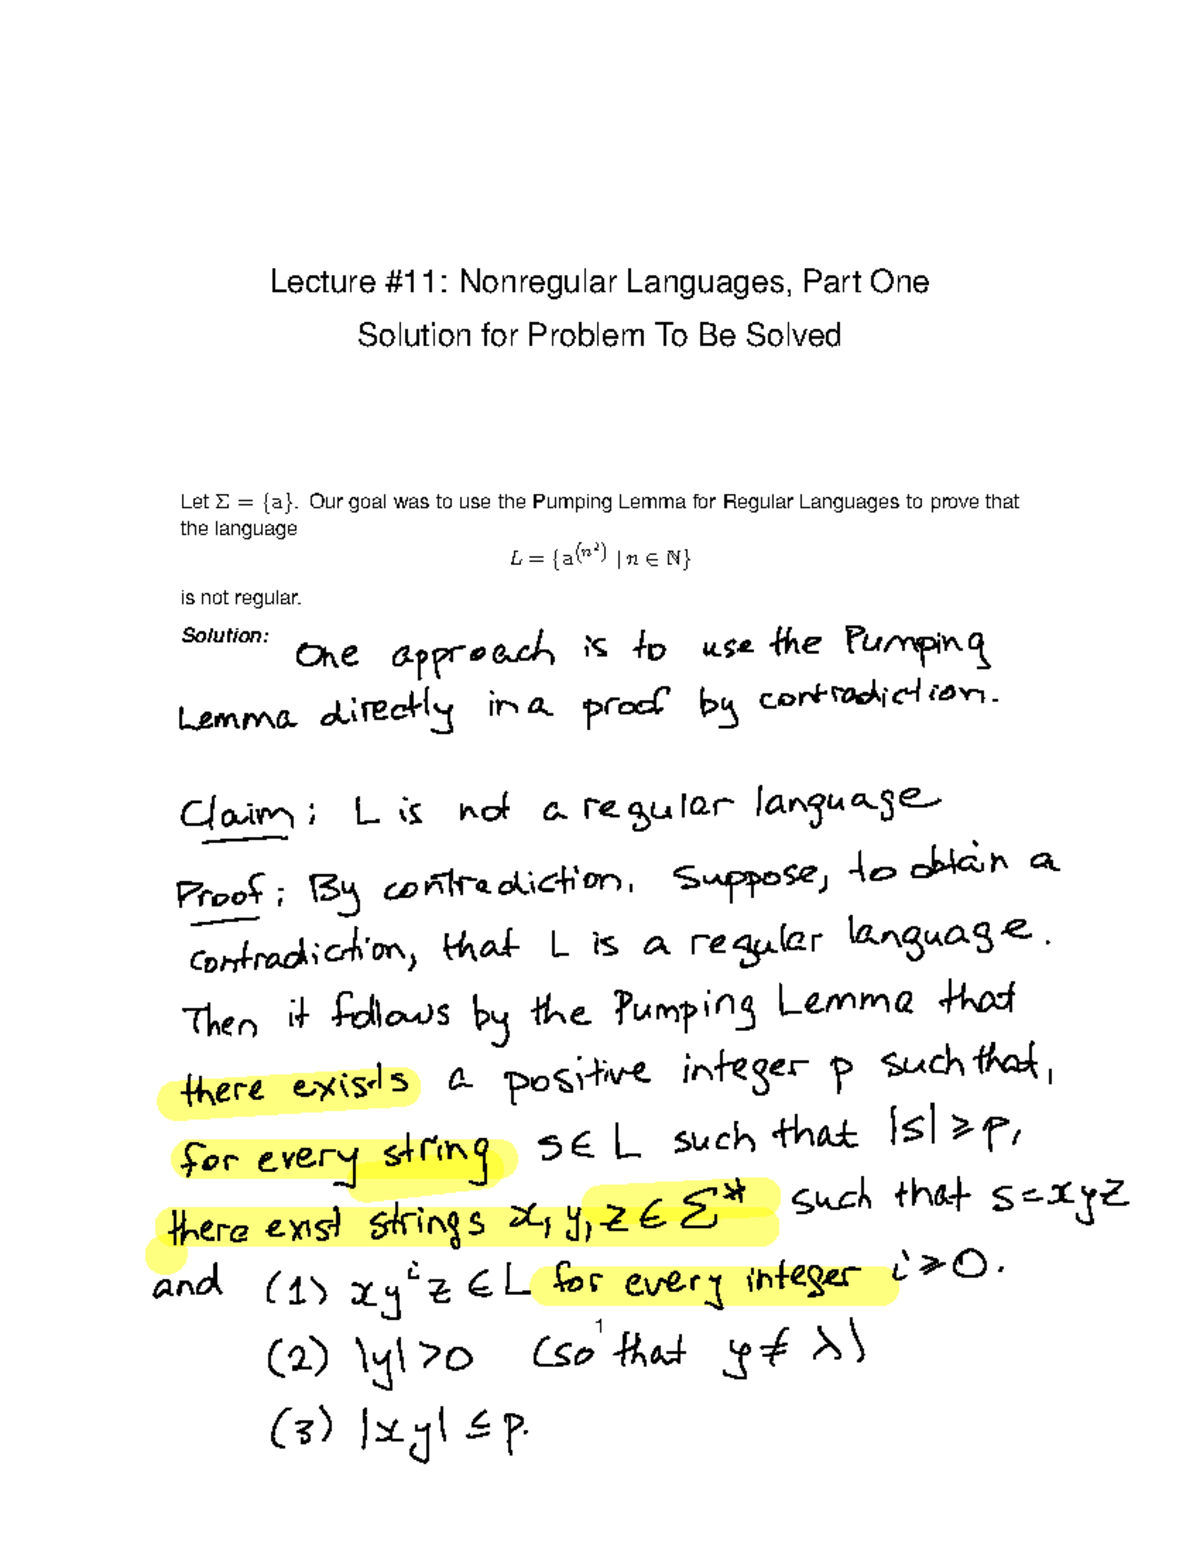 Lecture #11: Nonregular Languages, Part One
Solution for Problem To Be Solved
Let Σ = {a}. Our goal was to use the Pumping Lemma for Regular Languages to prove that
the language
L = {a^(n²) | n ∈ ℕ}
is not regular.
Solution: One approach is to use the Pumping
Lemma directly in a proof by contradiction.
Claim: L is not a regular language
Proof: By contradiction. Suppose, to obtain a
contradiction, that L is a regular language.
Then it follows by the Pumping Lemma that
there exists a positive integer p such that,
for every string s ∈ L such that |s| ≥ p,
there exist strings x, y, z ∈ Σ* such that s = xyz
and (1) xyⁱz ∈ L for every integer i ≥ 0.
(2) |y| > 0 (so that y ≠ λ)
1
(3) |xy| ≤ p.